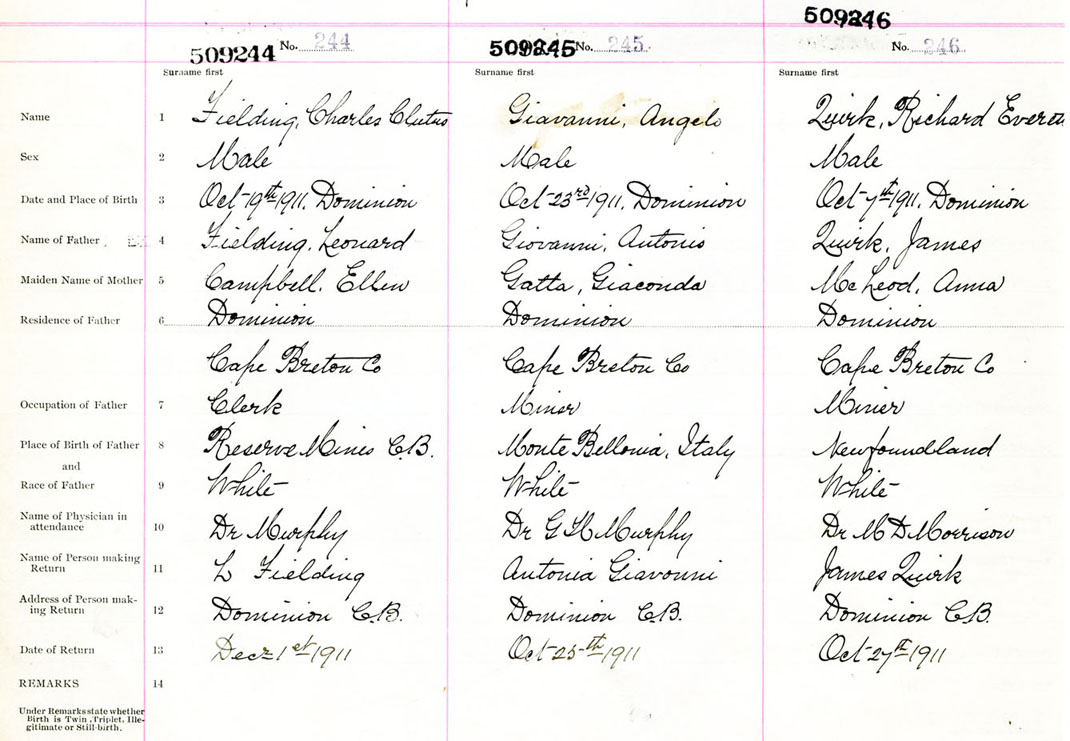 509246
509244 No. 244 509245 No. 245 No. 246
Surname first Surname first Surname first
Name 1 Fielding, Charles Cletus Giavanni, Angelo Quirk, Richard Everett
Sex 2 Male Male Male
Date and Place of Birth 3 Oct 19th 1911. Dominion Oct 23rd 1911. Dominion Oct 7th 1911. Dominion
Name of Father 4 Fielding, Leonard Giovanni, Antonio Quirk, James
Maiden Name of Mother 5 Campbell. Ellen Gatta, Giaconda McLeod, Anna
Residence of Father 6 Dominion Dominion Dominion
Cape Breton Co Cape Breton Co Cape Breton Co
Occupation of Father 7 Clerk Miner Miner
Place of Birth of Father 8 Reserve Mines C.B. Monte Bellonia, Italy Newfoundland
and
Race of Father 9 White White White
Name of Physician in
attendance 10 Dr Murphy Dr G H Murphy Dr M D Morrison
Name of Person making
Return 11 L Fielding Antonia Giavonni James Quirk
Address of Person mak-
ing Return 12 Dominion C.B. Dominion C.B. Dominion C.B.
Date of Return 13 Decr 1st 1911 Oct 25th 1911 Oct 27th 1911
REMARKS 14
Under Remarks state whether
Birth is Twin, Triplet, Ille-
gitimate or Still-birth.